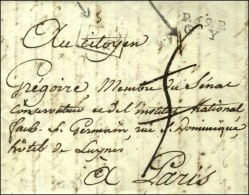 Au citoyen
Grégoire, Membre du Sénat
Conservateur et de l'institut national
faub. St. Germain, rue St. Dominique,
hôtel de Luynes
à Paris